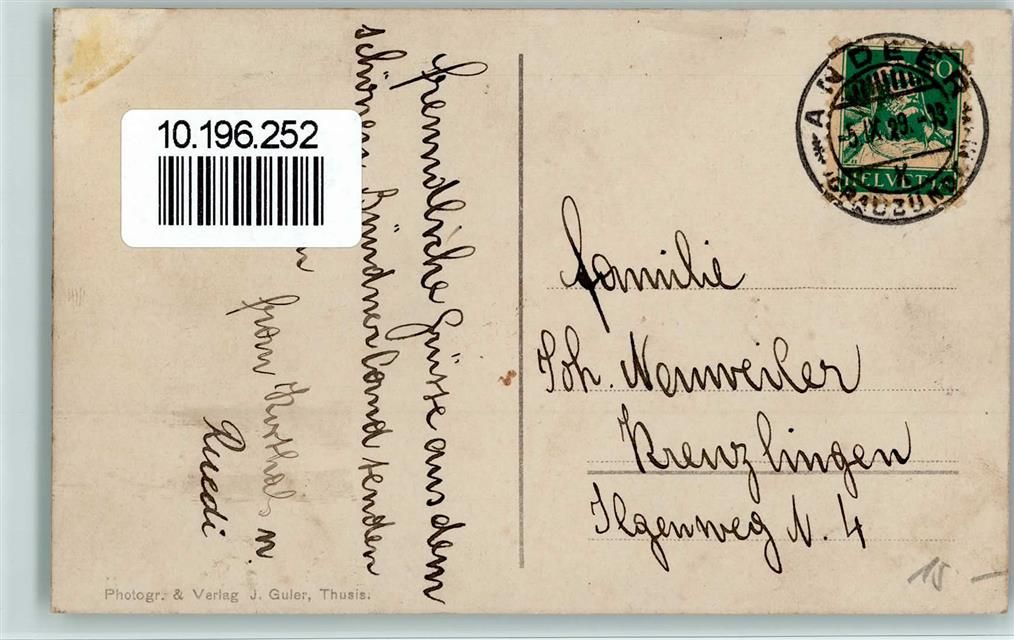 10.196.252
freundliche Grüsse aus dem
schönen Bündnerland senden
frau
Ruedi
ANDEER
-5.IX.29.-13
(GRAUBÜNDEN)
HELVETIA
Familie
Joh. Neuweiler
Kreuzlingen
Ilgenweg N. 4
Photogr. & Verlag J. Guler, Thusis.